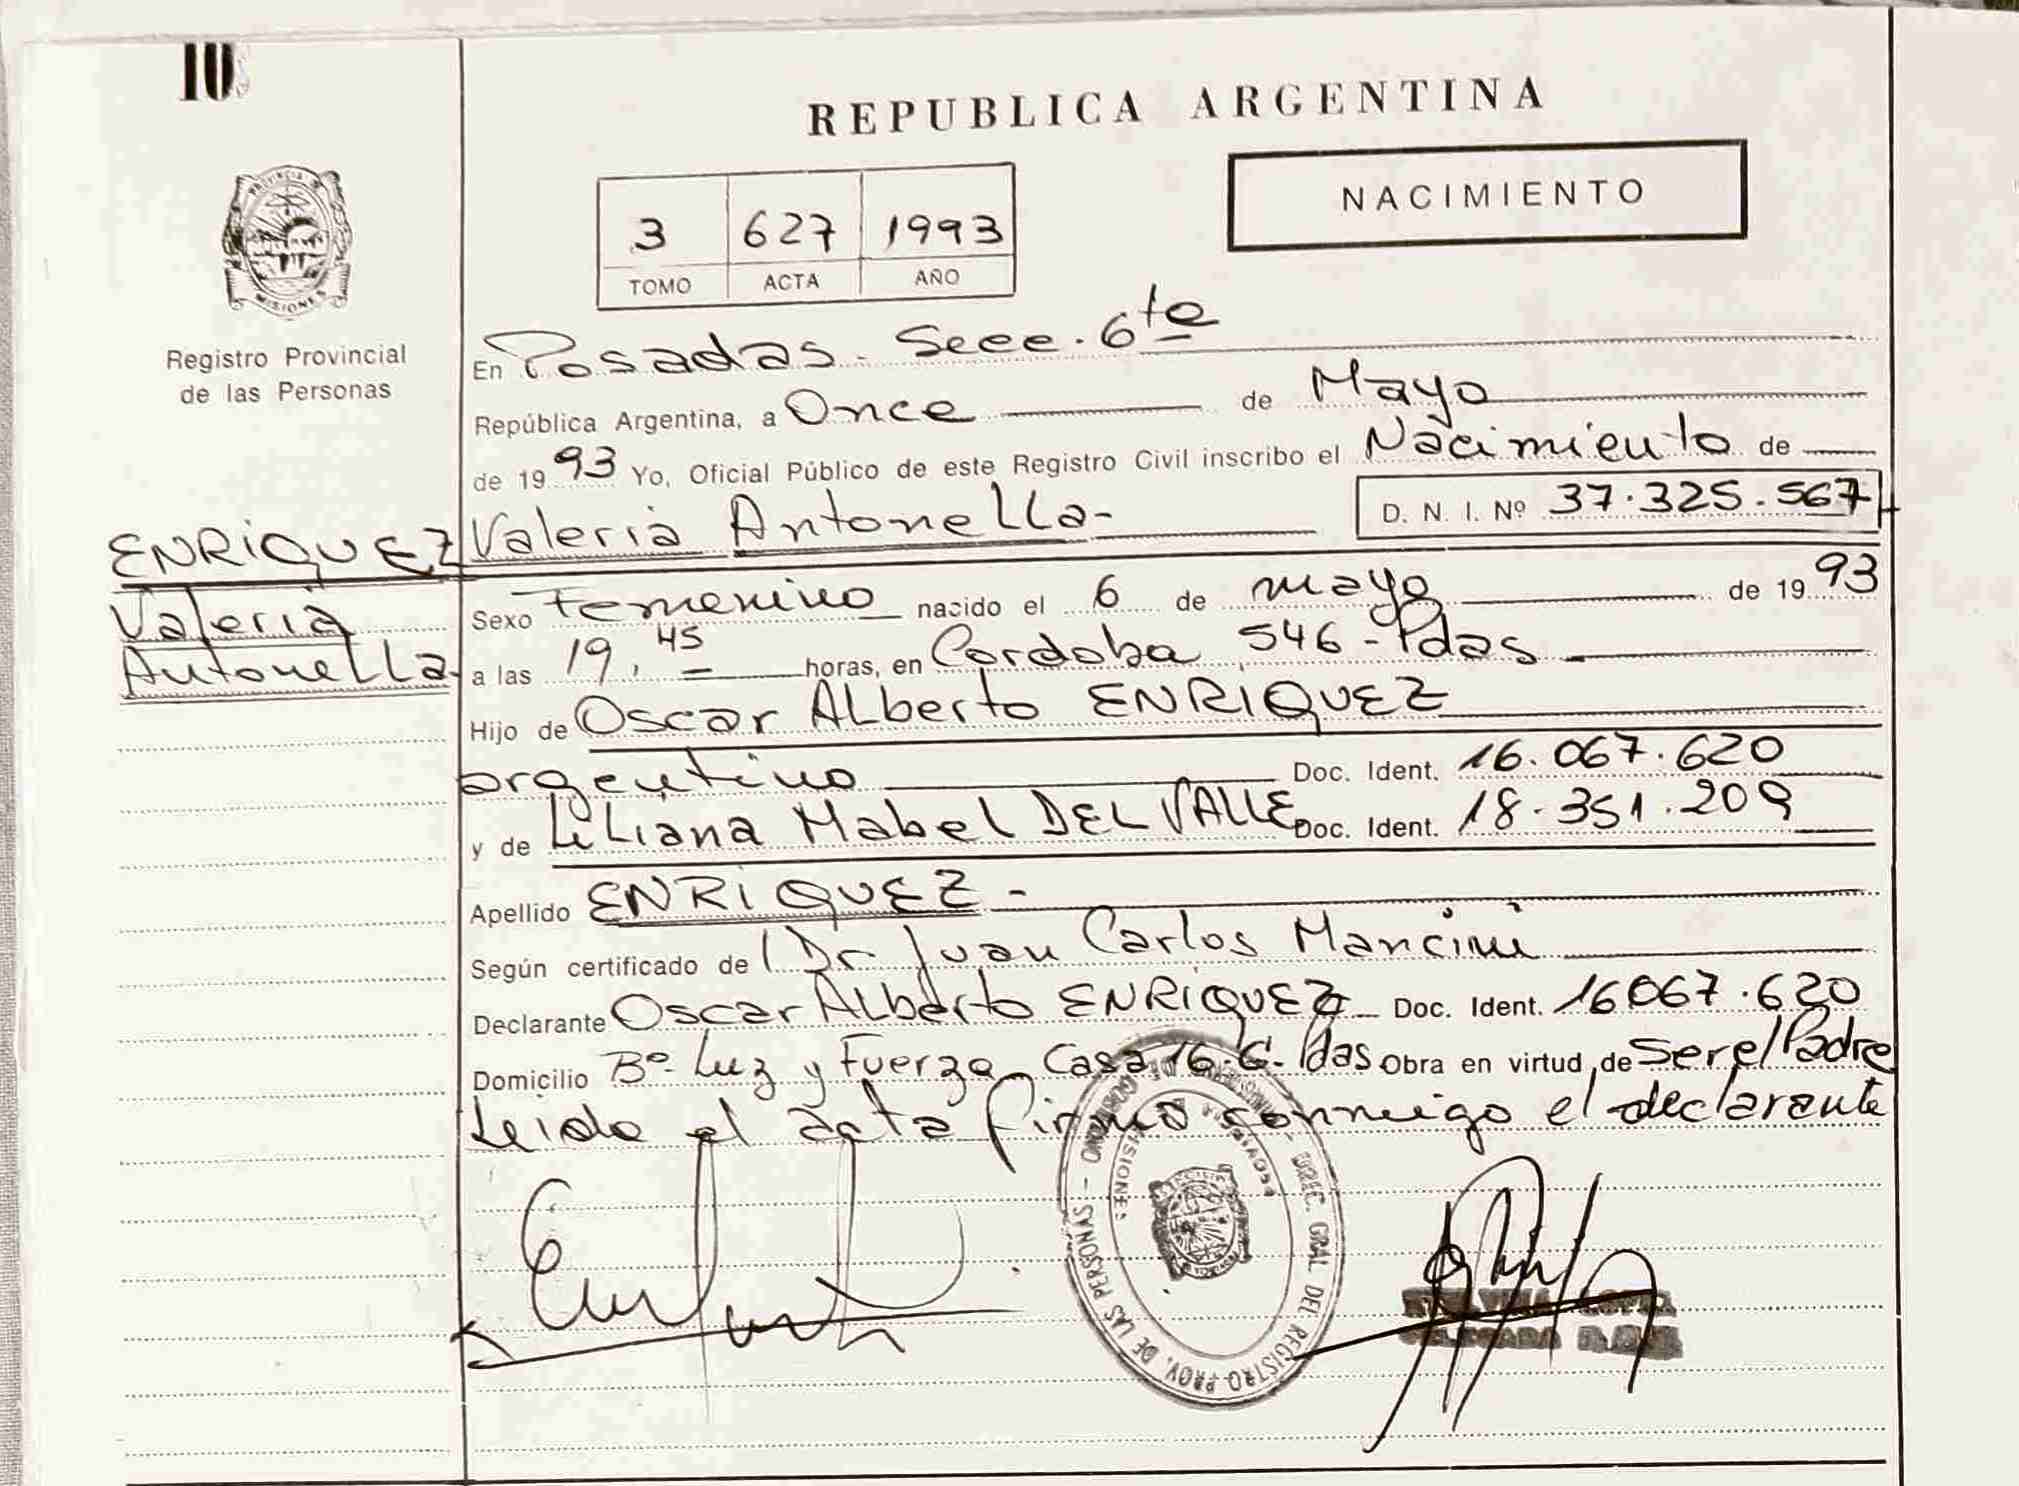 10
REPUBLICA ARGENTINA
NACIMIENTO
3 627 1993
TOMO ACTA AÑO
PROVINCIA D
MISIONES
Registro Provincial
de las Personas
En Posadas - Secc. 6ta
República Argentina, a Once de Mayo
de 1993 Yo, Oficial Público de este Registro Civil inscribo el Nacimiento de
Valeria Antonella - D. N. I. Nº 37.325.567
ENRIQUEZ
Valeria
Antonella
Sexo Femenino nacido el 6 de mayo de 1993
a las 19,45 horas, en Cordoba 546 - Pdas
Hijo de Oscar Alberto ENRIQUEZ
argentino Doc. Ident. 16.067.620
y de Liliana Mabel DEL VALLE Doc. Ident. 18.351.209
Apellido ENRIQUEZ -
Según certificado de Dr Juan Carlos Mancini
Declarante Oscar Alberto ENRIQUEZ Doc. Ident. 16067.620
Domicilio Bº Luz y Fuerza Casa 16. Pdas Obra en virtud de Ser el Padre
Leida el acta firma conmigo el declarante
DIREC. GRAL DEL REGISTRO PROV. DE LAS PERSONAS
MISIONES